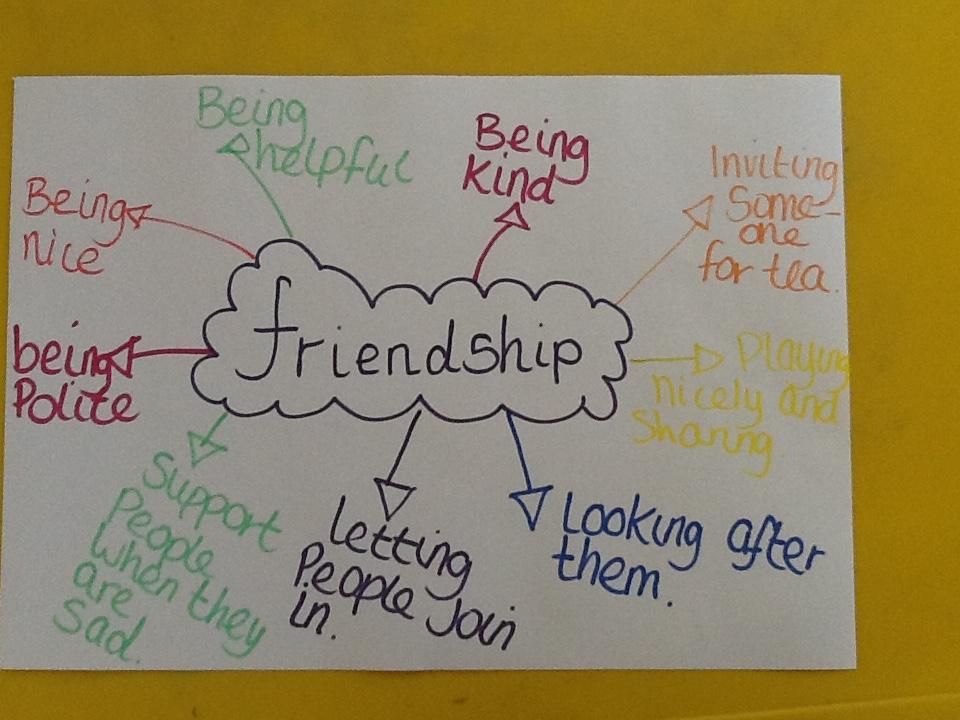 friendship
Being
helpful
Being
Kind
Inviting
Some-
one
for tea.
Playing
nicely and
Sharing.
Looking after
them.
Letting
People Join
in.
Support
People
when they
are
Sad.
being
Polite
Being
nice